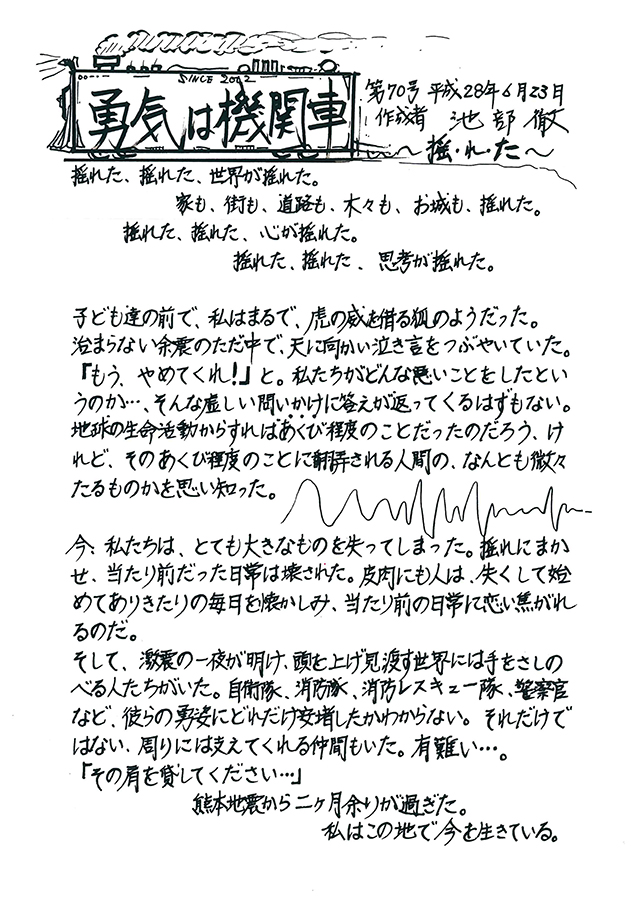 SINCE 2002
勇気は機関車
第70号 平成28年6月23日
作成者 池部 徹
〜揺・れ・た〜
揺れた、揺れた、世界が揺れた。
家も、街も、道路も、木々も、お城も、揺れた。
揺れた、揺れた、心が揺れた。
揺れた、揺れた、思考が揺れた。
子ども達の前で、私はまるで、虎の威を借る狐のようだった。
治まらない余震のただ中で、天に向かい泣き言をつぶやいていた。
「もう、やめてくれ!」と。私たちがどんな悪いことをしたとい
うのか…、そんな虚しい問いかけに答えが返ってくるはずもない。
地球の生命活動からすればあくび程度のことだったのだろう、け
れど、そのあくび程度のことに翻弄される人間の、なんとも微々
たるものかを思い知った。
今、私たちは、とても大きなものを失ってしまった。揺れにまか
せ、当たり前だった日常は壊された。皮肉にも人は、失くして始
めてありきたりの毎日を懐かしみ、当たり前の日常に恋い焦がれ
るのだ。
そして、激震の一夜が明け、頭を上げ見渡す世界には手をさしの
べる人たちがいた。自衛隊、消防隊、消防レスキュー隊、警察官
など、彼らの勇姿にどれだけ安堵したかわからない。それだけで
はない、周りには支えてくれる仲間もいた。有難い…。
「その肩を貸してください…」
熊本地震から二ヶ月余りが過ぎた。
私はこの地で今を生きている。